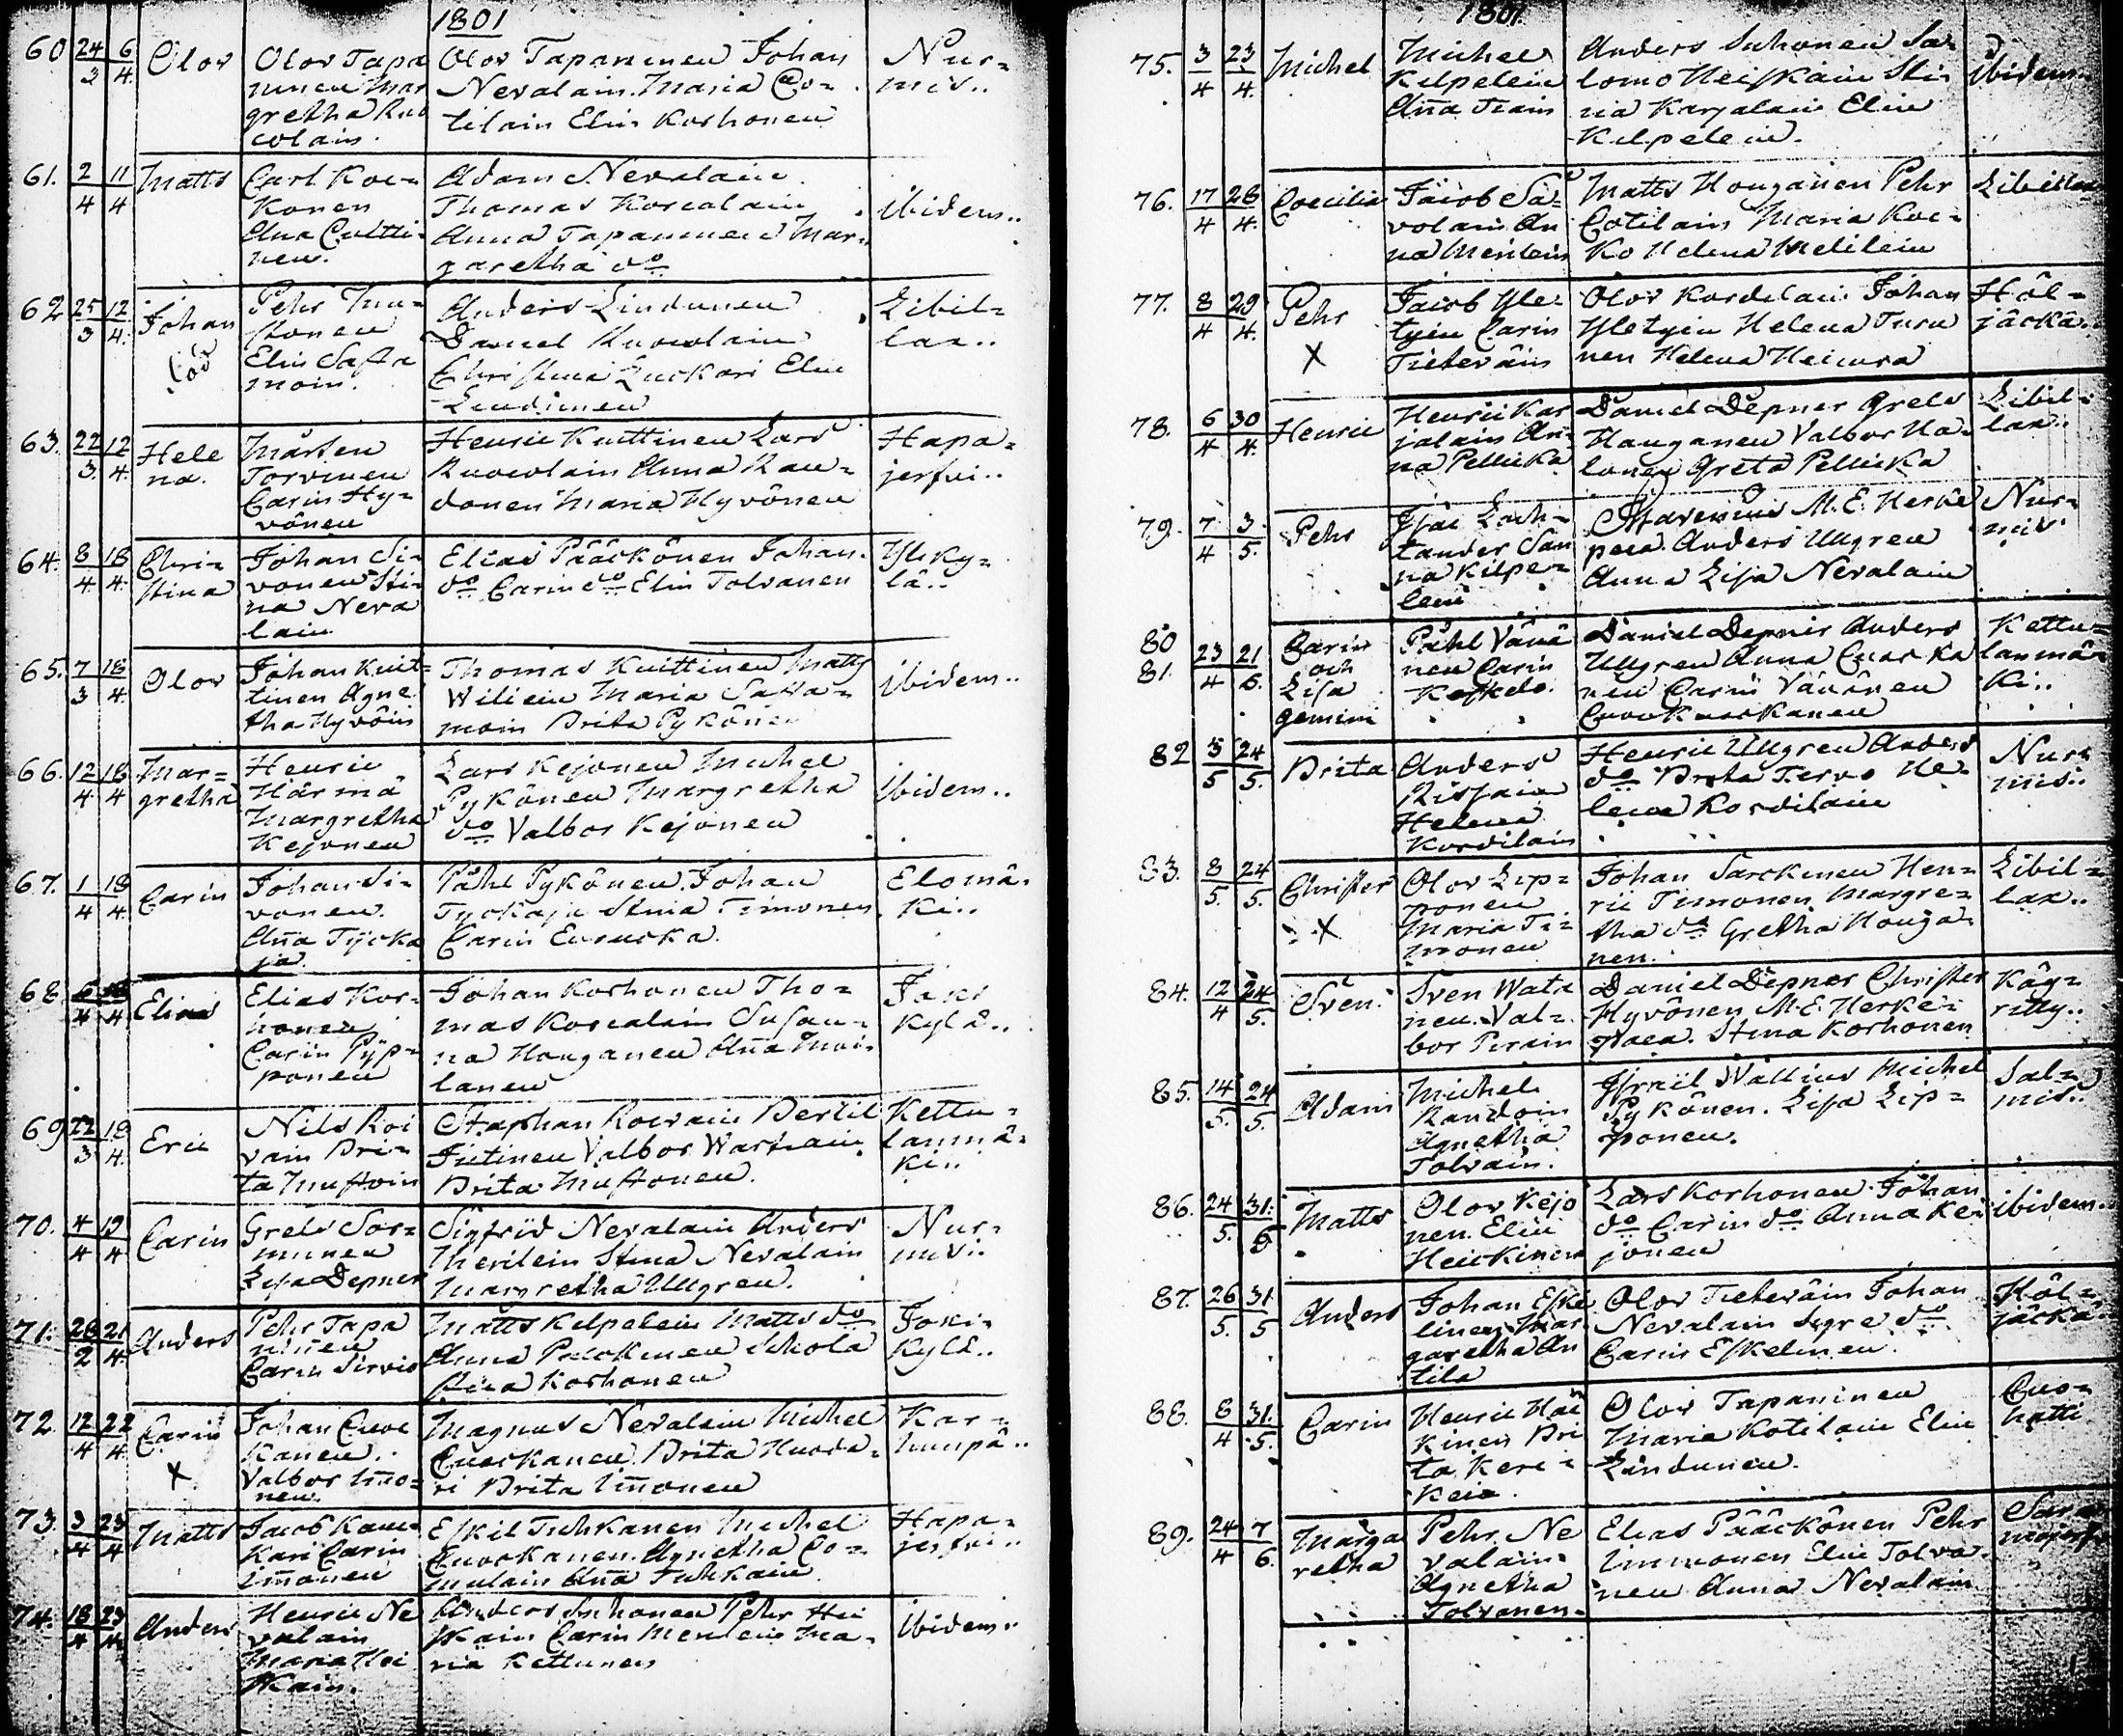 1801
60 24/3 6/4 Olov
Olov Tapa
ninen Mar
gretha
colain.
Olov Tapaninen Johan
Nevalain. Maria Co-
tilain Elin Korhonen
Nur-
mis..
61. 2/4 11/4 Matts
Carl Koc-
konen
Anna Cultti-
nen.
Adam Nevalain
Thomas Korcalain
Anna Tapaninen Mar-
garetha do
ibidem..
62 25/3 12/4 Johan
Pehr Mu-
stonen
Elin Sasta
moin.
Anders Lindunen
Daniel Ruocolain
Christina Luckari Elin
Lindunen
Libil-
lax..
63. 22/3 12/4 Hele
na.
Mårten
Torvinen
Carin Hy-
vönen
Henric Kuittinen Lars
Ruocolain Anna Rau-
donen Maria Hyvönen
Hapa-
jerfvi..
64. 8/4 18/4 Chri-
stina
Johan Si-
vonen Sti-
na Neva
lain
Elias Pääckönen Johan
do Carin do Elin Tolvanen
Ylky-
lä..
65. 7/3 18/4 Olov
Johan Kuit-
tinen Agne
tha Hyvöin
Thomas Kuittinen Matts
Wiliein Maria Sasta-
moin Brita Pykönen
ibidem..
66. 12/4 18/4 Mar-
gretha
Henric
Härmä
Margretha
Kejonen
Lars Kejonen Michel
Pykönen Margretha
do Valbor Kejonen
ibidem..
67. 1/4 18/4 Carin
Johan Si-
vonen.
Anna Tycka
ja.
Påhl Pykönen. Johan
Tyckäja Stina Timonen
Carin
Elomä-
ki..
68. 6/4 18/4 Elias
Elias Kor-
honen
Carin Pyp-
ponen
Johan Korhonen Tho-
mas Korcalain Susan-
na Houganen Anna Moi-
lanen
Joki
kylä..
69 22/3 18/4 Eric
Nils Roi
vain Bri-
ta Mustoin
Staphan Roivain Bertil
Valbor Wartiain
Brita Mustonen.
Kettu-
lanmä-
ki..
70. 4/4 19/4 Carin
Grels Sor-
munen
Lisa Depner
Sigfrid Nevalain Anders
Merilein Stina Nevalain
Margretha Ullgren.
Nur-
mis..
71. 26/2 21/4 Anders
Pehr Tapa
ninen
Carin Sirvio
Matts Kilpelein Matts do
Anna Pääckönen
Stina Korhonen
Joki-
kylä..
72. 12/4 22/4 Carin
X
Johan Cuoc
kanen.
Valbor Immo-
nen.
Magnus Nevalain Michel
Cuockanen. Brita Huovi-
ri Brita Immonen
Kar-
humpä..
73. 3/4 23/4 Matts
Jacob Kau-
kari Carin
Immonen
Eskil Tuhkanen Michel
Cuockanen. Agnetha Co-
mulain Anna Tuhkain
Hapa-
jerfvi..
74. 18/4 23/4 Anders
Henric Ne
valain
Maria Hei
skain.
Anders Suhonen Pehr Hei
skain Carin Merilein Ma-
ria Kettunen
ibidem..
1801.
75. 3/4 23/4 Michel
Michel
Kilpelein
Anna Train
Anders Suhonen Sa-
lomo Heiskain Sti-
na Karjalain Elin
Kilpelein.
ibidem..
76. 17/4 26/4 Coecilia
Jacob Sa-
volain An
na Merilein
Matts Houganen Pehr
Cotilain Maria Koc-
ko Helena Melilein
Libillax
77. 8/4 29/4 Pehr
X
Jacob Yle-
tyin Carin
Tieteväin
Olov Kordelain Johan
Yletyin Helena Turu
nen Helena Heicura
Höl-
jäckä..
78. 6/4 30/4 Henric
Henric Kar
jalain An-
na Pellicka
Daniel Depner Grels
Hauganen Valbor Ha-
lonen Greta Pellicka
Libil-
lax..
79. 7/4 3/5 Pehr
Isac Lach-
tander San
na Kilpe-
lein
M. E. Herke
paea. Anders Ullgren
Anna Lisa Nevalain
Nur-
mis
80
81. 23/4 21/5 Carin
och
Lisa
gemini
Påhl Vänä
nen Carin
Keskelo.
Daniel Depner Anders
Ullgren Anna Cuocka
nen Carin Vänänen
Kettu-
lanmä-
ki..
82 3/5 24/5 Brita
Anders
Risain
Helena
Kordilain
Henric Ullgren Anders
do Brita Tervo He-
lena Kordilain
Nur-
mis..
83. 8/5 24/5 Christer
X
Olov Lip-
ponen
Maria Ti-
monen
Johan Sarckinen Hen-
ric Timonen. Margre-
tha do Gretha Houga-
nen.
Libil-
lax..
84. 12/4 24/5 Sven.
Sven Wata
nen. Val-
bor Pirain
Daniel Depner Christer
Hyvönen M. E. Herke-
paea. Stina Korhonen
Käy-
rilly..
85. 14/5 24/5 Adam
Michel
Randoin
Agnetha
Tolvain.
Israil Wallius Michel
Pykönen. Lisa Lip-
ponen.
Sal-
mis..
86. 24/5 31/5 Matts
Olov Kejo
nen. Elin
Heickinen
Lars Korhonen Johan
do Carin do Anna Ke-
jonen
ibidem..
87. 26/5 31/5 Anders
Johan Eske
linen Mar-
garetha An
tila
Olov Tieteväin Johan
Nevalain Sigre do
Carin Eskelinen.
Höl-
jäckä..
88. 8/4 31/5 Carin
Henric Hac
kinen Bri
ta Keri-
kein.
Olov Tapaninen
Maria Kotilain Elin
Lindunen.
Cuo-
hatti
89. 24/4 7/6 Marga
retha
Pehr Ne
valain
Agnetha
Tolvanen.
Elias Pääckönen Pehr
Immonen Elin Tolva-
nen Anna Nevalain